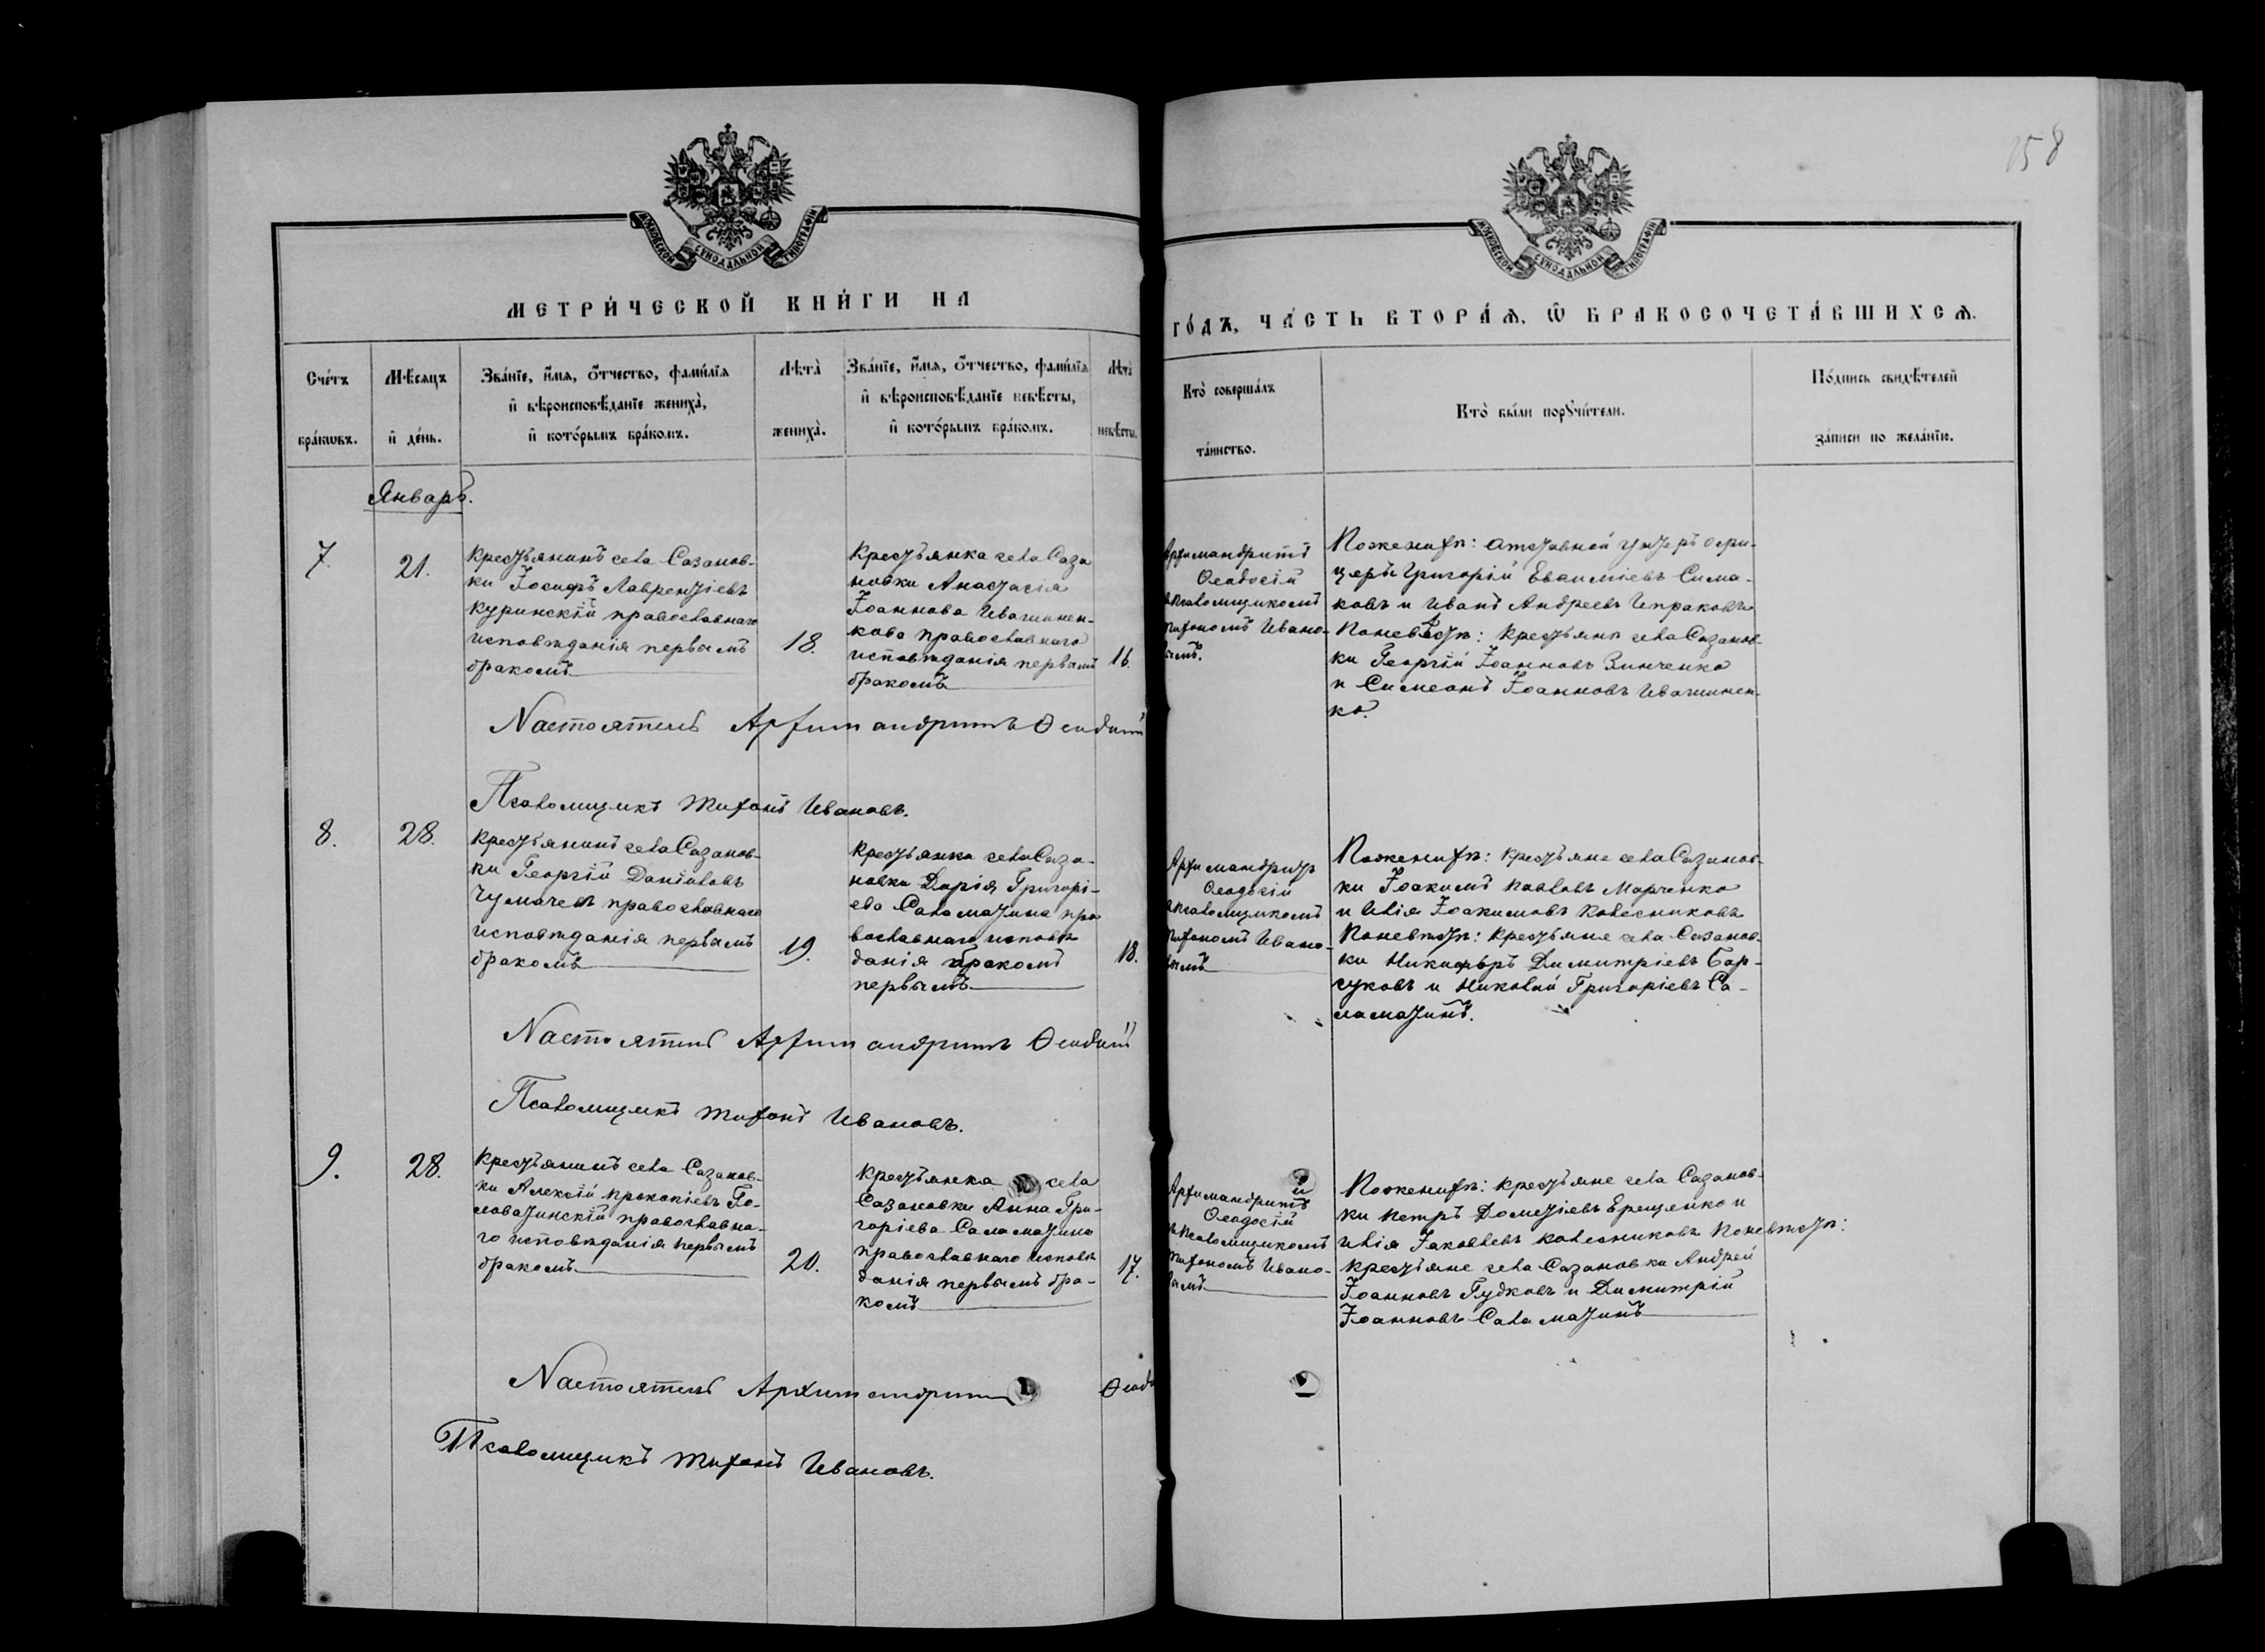 158
МОСКОВСКОЙ СѴНОДАЛЬНОЙ ТИПОГРАФІИ
МОСКОВСКОЙ СѴНОДАЛЬНОЙ ТИПОГРАФІИ
МЕТРИ́ЧЕСКОЙ КНИ́ГИ НА
ГО́ДЪ, ЧА́СТЬ ВТОРА́Ѧ, Ѡ҆ БРАКОСОЧЕТА́ВШИХСѦ.
Сче́тъ бра́кѡвъ.
Мѣ́сяцъ и҆ де́нь.
Зва́нїе, и҆́мѧ, ѻ҆́тчество, фами́лїѧ
и҆ вѣроисповѣ́данїе жениха̀,
и҆ кото́рымъ бра́комъ.
Лѣта̀ жениха̀.
Зва́нїе, и҆́мѧ, ѻ҆́тчество, фами́лїѧ
и҆ вѣроисповѣ́данїе невѣ́сты,
и҆ кото́рымъ бра́комъ.
Лѣта̀ невѣ́сты.
Кто̀ соверша́лъ та́инство.
Кто̀ бы́ли порꙋчи́тели.
По́дпись свидѣ́телей
за́писи по жела́нїю.
Январь.
7.
21.
Крестьянинъ села Сазонов-
ки Іосифъ Лаврентіевъ
Куринскій православнаго
исповѣданія первымъ
бракомъ
18.
Крестьянка села Сазо
новки Анастасія
Іоаннова Ивашинен-
кова православнаго
исповѣданія первымъ
бракомъ
16.
Архимандритъ
Ѳеодосій
съ псаломщикомъ
Тихономъ Ивано-
вымъ.
Поженихѣ: отставной унтеръ офи-
церъ Григорій Евѳиміевъ Сима-
ковъ и Иванъ Андреевъ
Поневѣстѣ: крестьяне села Сазонов-
ки Георгій Іоанновъ Зинченко
и Симеонъ Іоанновъ Ивашинен-
ко.
Настоятель Архимандритъ Ѳеодосій
Псаломщикъ Тихонъ Ивановъ.
8.
28.
Крестьянинъ села Сазонов-
ки Георгій Даніиловъ
Чумачевъ православнаго
исповѣданія первымъ
бракомъ
19.
Крестьянка села Сазо-
новки Дарія Григорі-
ева Саламатина пра
вославнаго исповѣ
данія бракомъ
первымъ
18.
Архимандритъ
Ѳеодосій
съ псаломщикомъ
Тихономъ Ивано-
вымъ
Поженихѣ: крестьяне села Сазонов-
ки Іоакимъ Павловъ Марченко
и Илія Іоакимовъ Колесниковъ
Поневѣстѣ: крестьяне села Сазонов-
ки Никифоръ Димитріевъ Бар-
суковъ и Николай Григоріевъ Са-
ламатинъ.
Настоятель Архимандритъ Ѳеодосій
Псаломщикъ Тихонъ Ивановъ.
9.
28.
Крестьянинъ села Сазонов-
ки Алексій Прокопіевъ Го-
ловатинскій православна-
го исповѣданія первымъ
бракомъ
20.
Крестьянка села
Сазоновки Анна Гри-
горіева Саламатина
православнаго исповѣ
данія первымъ бра-
комъ
17.
Архимандритъ
Ѳеодосій
съ псаломщикомъ
Тихономъ Ивано-
вымъ
Поженихѣ: крестьяне села Сазонов-
ки Петръ Дометіевъ Ерещенко и
Илія Іаковлевъ Колесниковъ Поневѣстѣ:
крестьяне села Сазоновки Андрей
Іоанновъ Гудковъ и Димитрій
Іоанновъ Саламатинъ
Настоятель Архимандритъ
Псаломщикъ Тихонъ Ивановъ.